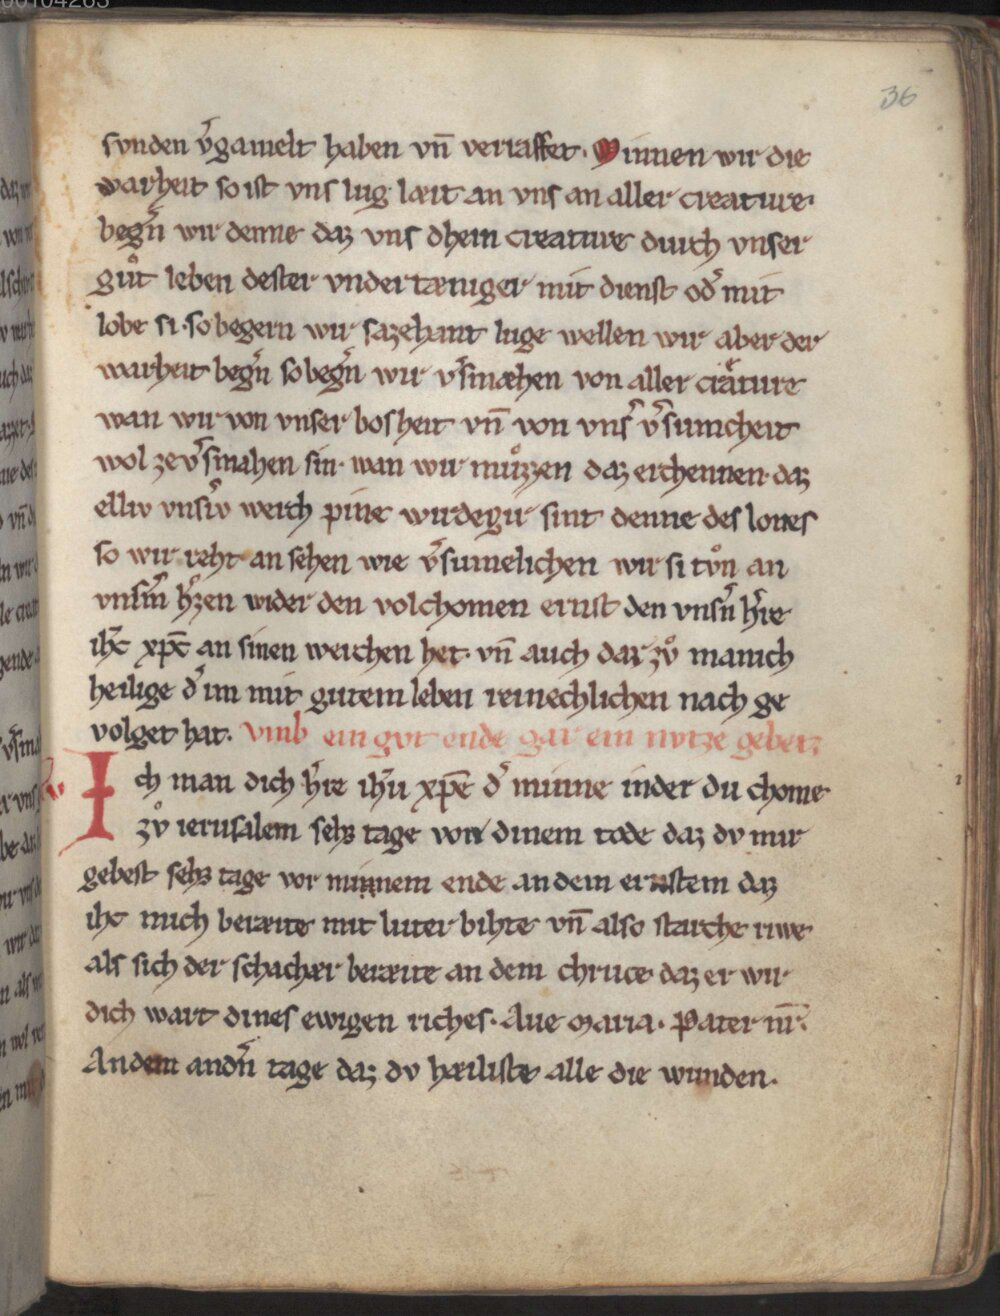 36
svnden v̄gamelt haben vn̄ verrastet. Minnen wir die
warheit so ist vns lug læit an vns an aller creature.
beḡn wir denne daz vns dhein creature durch vnser
gůt leben dester vndertæniger mit dienst od̄ mit
lobe si. so begern wir sazehant luge wellen wir aber der
warheit beḡn so beḡn wir v̄smæhen von aller creature
wan wir von vnser bosheit vn̄ von vns̄ v̄sumcheit
wol ze v̄smahen sin. wan wir můzzen daz erchennen. daz
elliv vns̄iv werch pine wirdeger sint denne des lones
so wir reht an sehen wie v̄sumelichen wir si tv̊n an
vns̄m h̄zen wider den volchomen ernst den vns̄n h̄re
ih̄c xp̄c an sinen werchen het. vn̄ auch dar zv̊ manich
heilige d̄ im mit gutem leben reinechlichen nach ge
volget hat. Vmb ein gvt ende gar ein nvtze gebetz
Ich man dich h̄re ih̄u xp̄e d̄ minne in der du chome
zv̊ ierusalem sehs tage von dinem tode daz dv mir
gebest sehs tage vor minnem ende an dem ersten daz
ihc mich beræite mit luter bihte vn̄ also starche riwe
als sich der schachær beræite an dem chruce daz er wir
dich wart dines ewigen riches. Aue maria. Pater nr̄.
An dem andn̄ tage daz dv hæiliste alle die wunden.